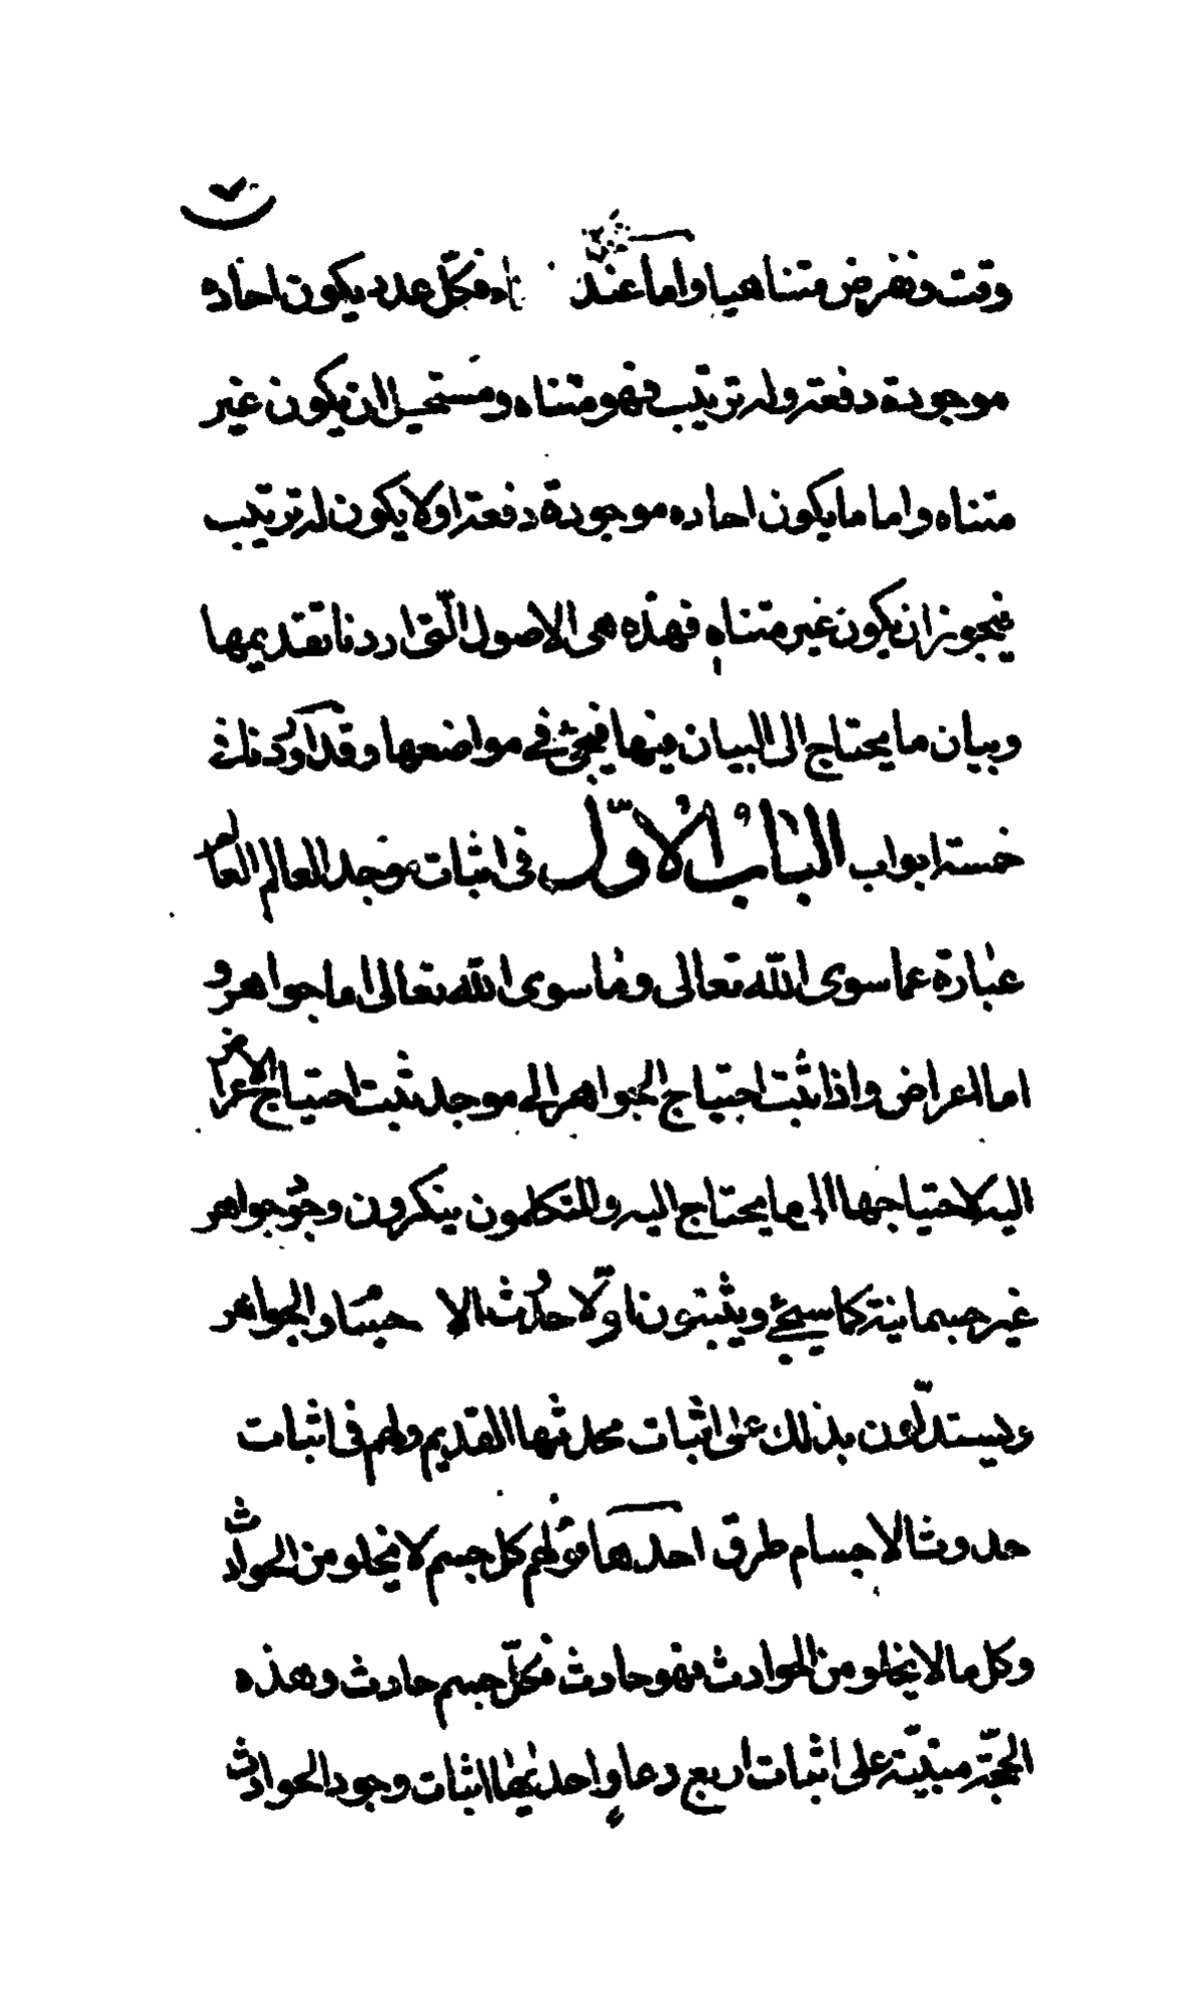 ٧
وقت ونفرض متناهيا واما عند فكلّ عدد يكون احاده
موجودة دفعة وله ترتيب فهو متناه ومستحيل ان يكون غير
متناه واما ما يكون احاده موجودة دفعة او لا يكون له ترتيب
فيجوز ان يكون غير متناه فهذه هى الاصول الّتى اردنا تقديمها
وبيان ما يحتاج الى البيان فيها فيجئ فى مواضعها وقد اورد ذلك فى
خمسة ابواب الباب الاوّل فى اثبات موجد العالم العالم
عبارة عما سوى اللّه تعالى وما سوى اللّه تعالى اما جواهر و
اما اعراض واذا ثبت احتياج الجواهر الى موجد ثبت احتياج الاعراض
اليه لاحتياجها الى ما يحتاج اليه والمتكلمون ينكرون وجود جواهر
غير جسمانية كما سيجئ ويثبتون اوّلا حدوث الاجسام والجواهر
ويستدلّون بذلك على اثبات محدثها القديم ولهم فى اثبات
حدوث الاجسام طرق احدها قولهم كل جسم لا يخلو من الحوادث
وكل ما لا يخلو من الحوادث فهو حادث فكلّ جسم حادث وهذه
الحجّة مبنيّة على اثبات اربع دعاو احديها اثبات وجود الحوادث